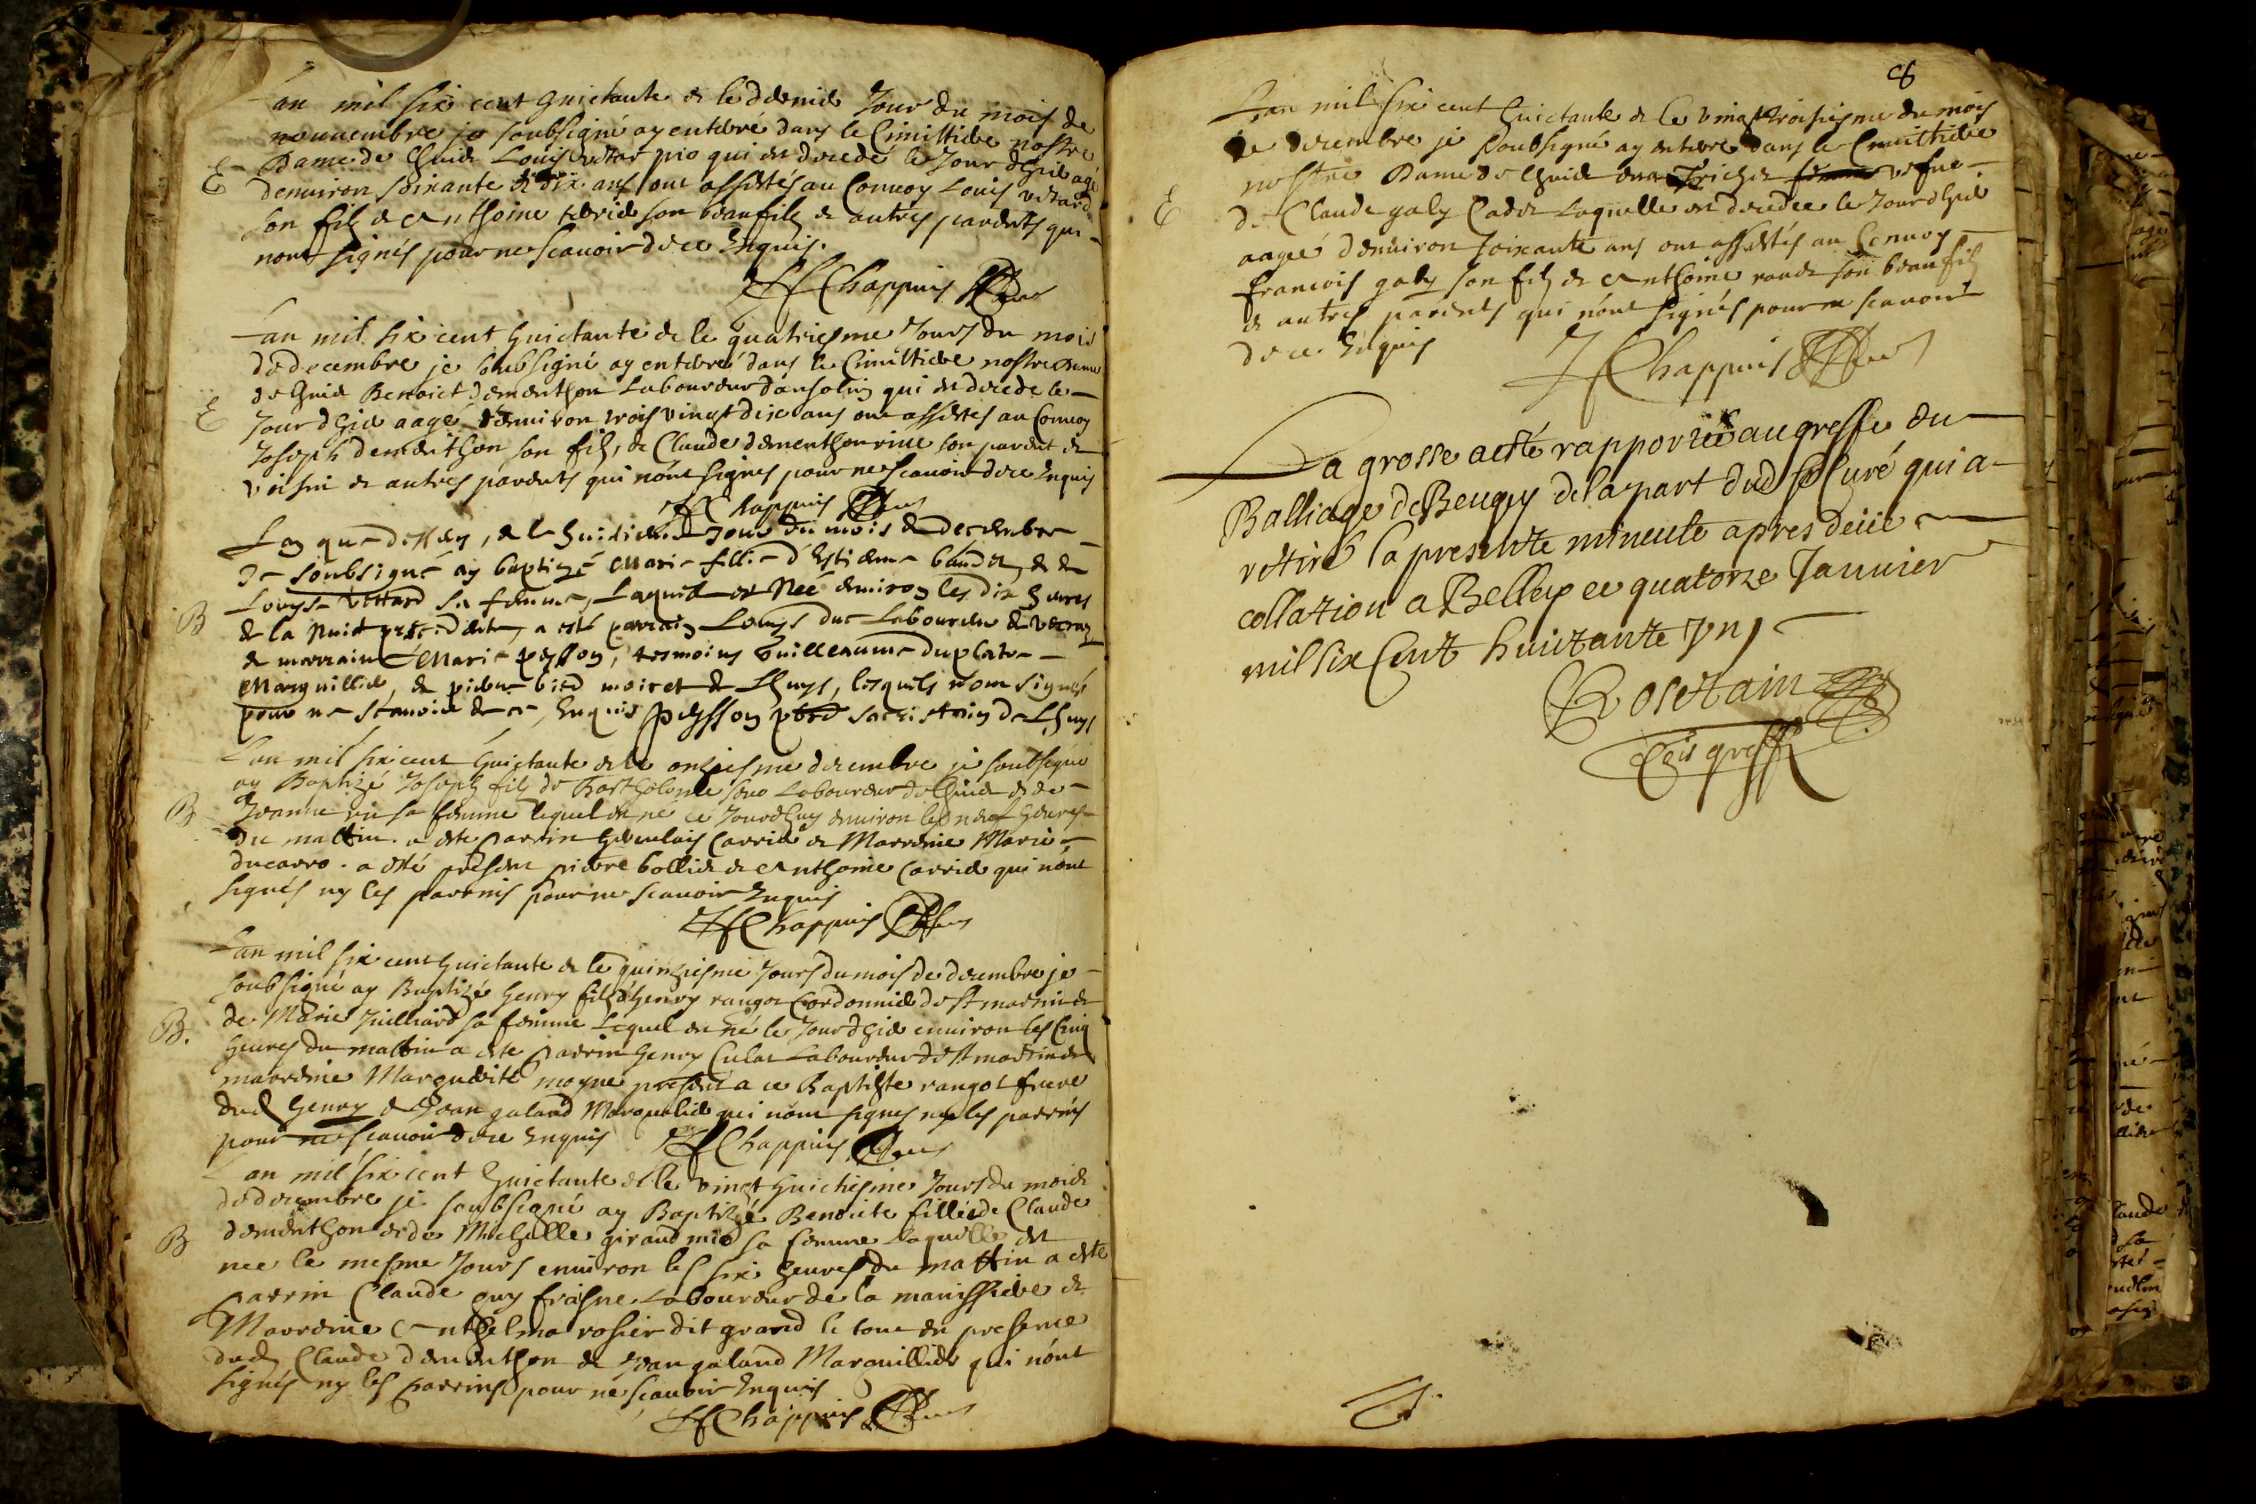 L'an mil six cent huictante & le dernier Jour du mois de
nouuembre je soubsigné ay enterré dans le Cimittiere nostre
E Dame de Lhuis Louis qui est decedé le Jour dhier agé
denuiron soixante & dix ans ont assistés au Conuoy Louis
son filz & Anthoine son beaufilz & autres parents qui
nont signés pour ne scauoir de ce Enquis.
Chappuis
L'an mil six cent huictante & le quatriesme Jours du mois
de decembre je soubsigné ay enterré dans le Cimittiere nostre Dame
E de Lhuis Benoict dementhon Laboureur qui est decede le
Jour dhier aagé denuiron trois vingt dix ans ont assistes au Conuoy
Joseph dementhon son filz, & Claude dementhon son parent &
voisin & autres parents qui nont signes pour ne scauoir de ce Enquis
Chappuis
L'an que dessus, & le huictiesme Jour du mois de decembre
Je soubsigné ay baptizé Marie fille d'Estienne & de
Louyse sa femme, Laquelle est Née enuiron les dix heures
B de la nuict precedente, a esté parrain Louys Laboureur de
& marraine Marie peysson, tesmoins Guilleaume duplatre
Marguillier, & pierre moiret de Lhuys, lesquels n'ont signés
pour ne scauoir de ce Enquis Peysson pbre sacristain de Lhuys
L'an mil six cent huictante & le onziesme decembre je soubsigné
ay Baptizé Joseph filz de Barthelemie Laboureur de Lhuis & de
B Jeanne sa femme lequel est né ce Jourdhuy enuiron les neuf heures
du mattin. a este Parrin & Marrenie Marie
ducarro. a esté present pierre bollier & Anthoine Carrier qui nont
signés ny les parrins pour ne scauoir Enquis
Chappuis
L'an mil six cent huictante & le quinziesme Jours du mois de decembre je
soubsigné ay Baptizé Henry filz d'Henry rangot Cordonnier de St martin &
B. de Marie Juilliard sa femme Lequel est né le Jour dhier enuiron les Cinq
heures du mattin a este Parrin Henry Culat Laboureur de St martin &
marrenie Marguerite moyne present a ce Baptiste rangot frere
dud Henry & Jean galand Marguelier qui nont signes ny les parrins
pour ne scauoir de ce Enquis Chappuis
L'an mil six cent huictante & le vingt huictiesme Jours du mois
de decembre je soubsigné ay Baptizé Benoite fille de Claude
B dementhon & de Michelle sa femme Laquelle est
nee le mesme Jours enuiron les six heures du mattin a este
Parrin Claude guy fraisne Laboureur de la &
Marrenie Anthelma rosier dit grand le tout en presence
dud Claude dementhon & Jean galand Marguillier qui nont
signés ny les Parrins pour ne scauoir Enquis
Chappuis
8
L'an mil six cent huictante & le vingttroisiesme du mois
de decembre je soubsigné ay enterre dans le Cimittiere
E nostre Dame de Lhuis vefue
de Claude galy Cadet Laquelle est decedee le Jour dhier
aagée denuiron soixante ans ont assistés au Conuoy
francois galy son filz & Anthoine son beaufilz
& autres parents qui nont signés pour ne scauoir
de ce Enquis Chappuis
La grosse a esté rapportée au greffe du
Balliage de Beugey de la part dud Sr Curé qui a
retiré la presente mineute apres deüe
collation a Belley ce quatorze Januier
mil six Cent huictante Vn
Rosetain
Cõis greff